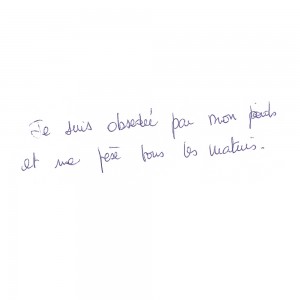 Je suis obsedée par mon poids
et me pesé tous les matins.